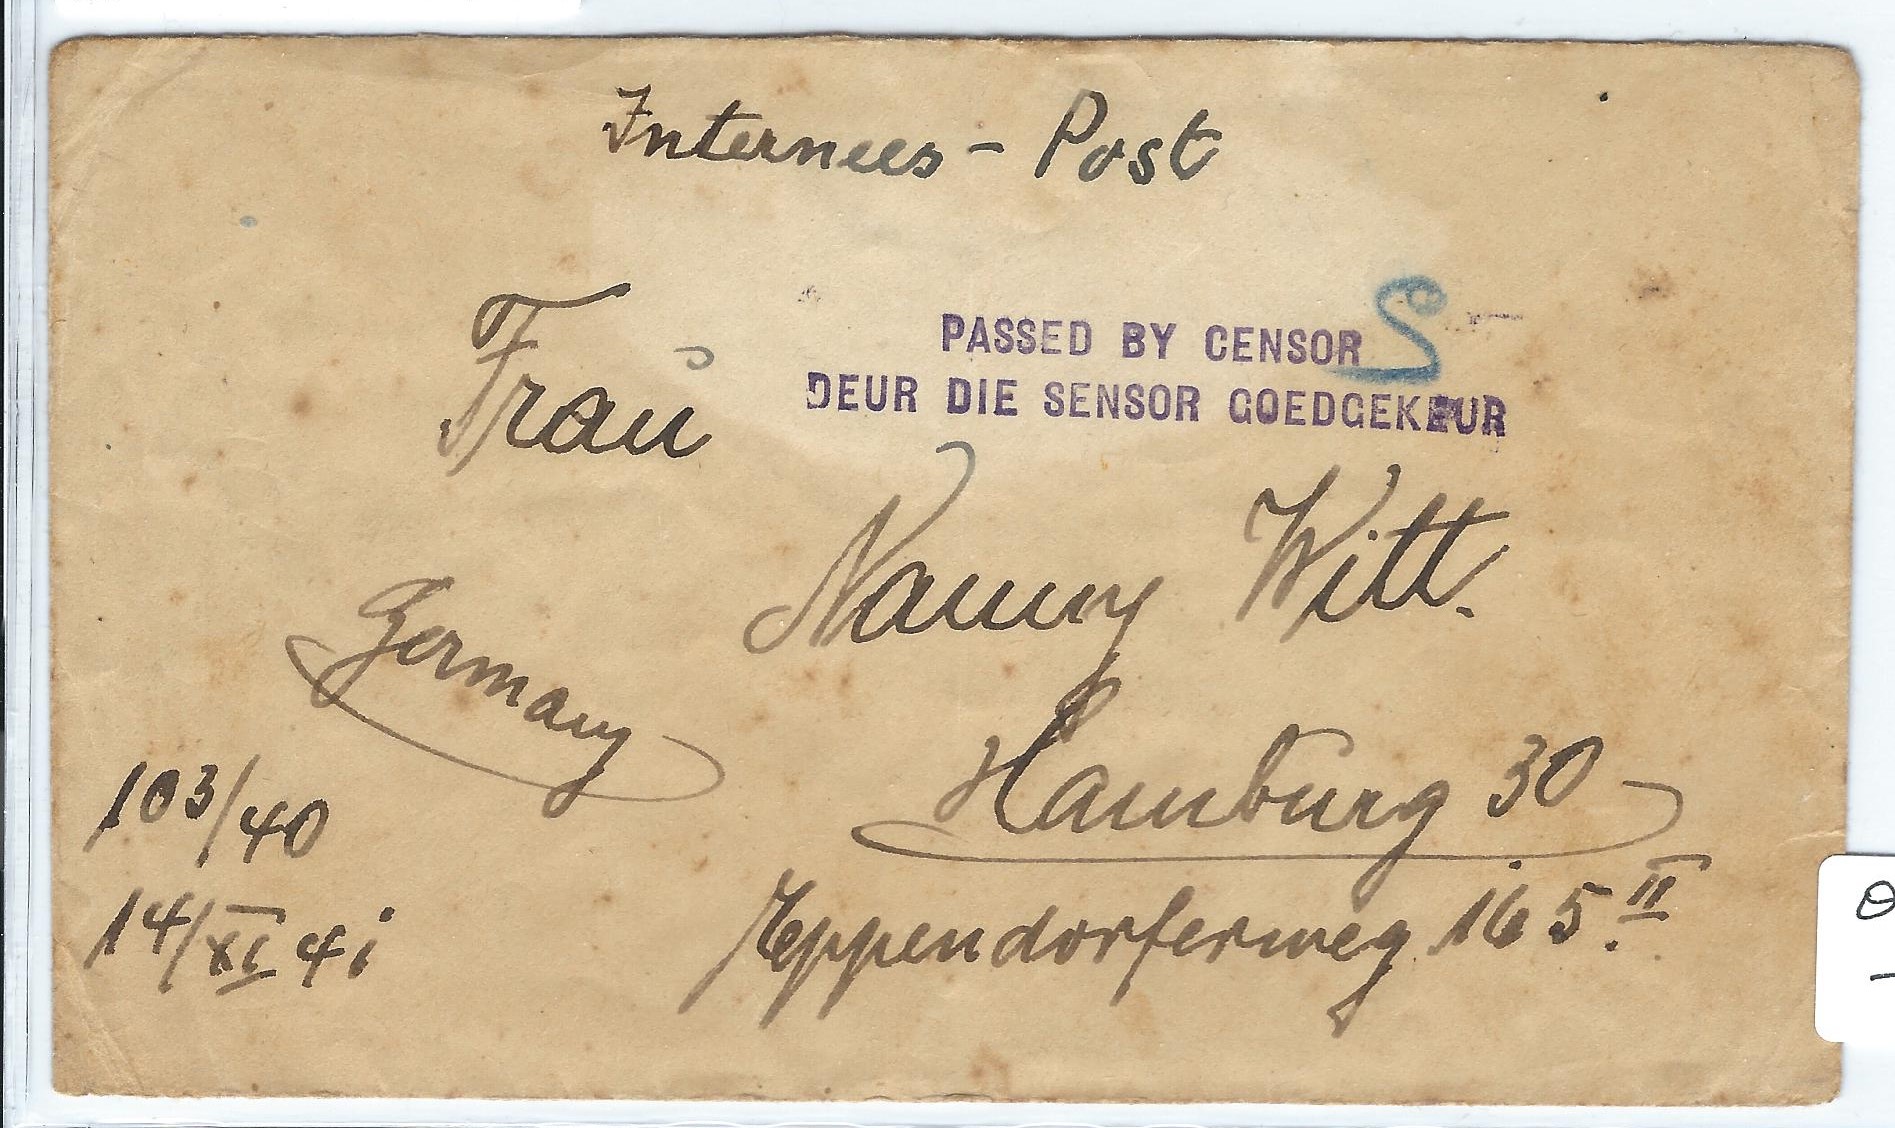 Internees - Post
PASSED BY CENSOR S
DEUR DIE SENSOR GOEDGEKEUR
Frau
Nanny Witt.
Germany
Hamburg 30
Eppendorferweg 165.II
103/40
14/XI 41